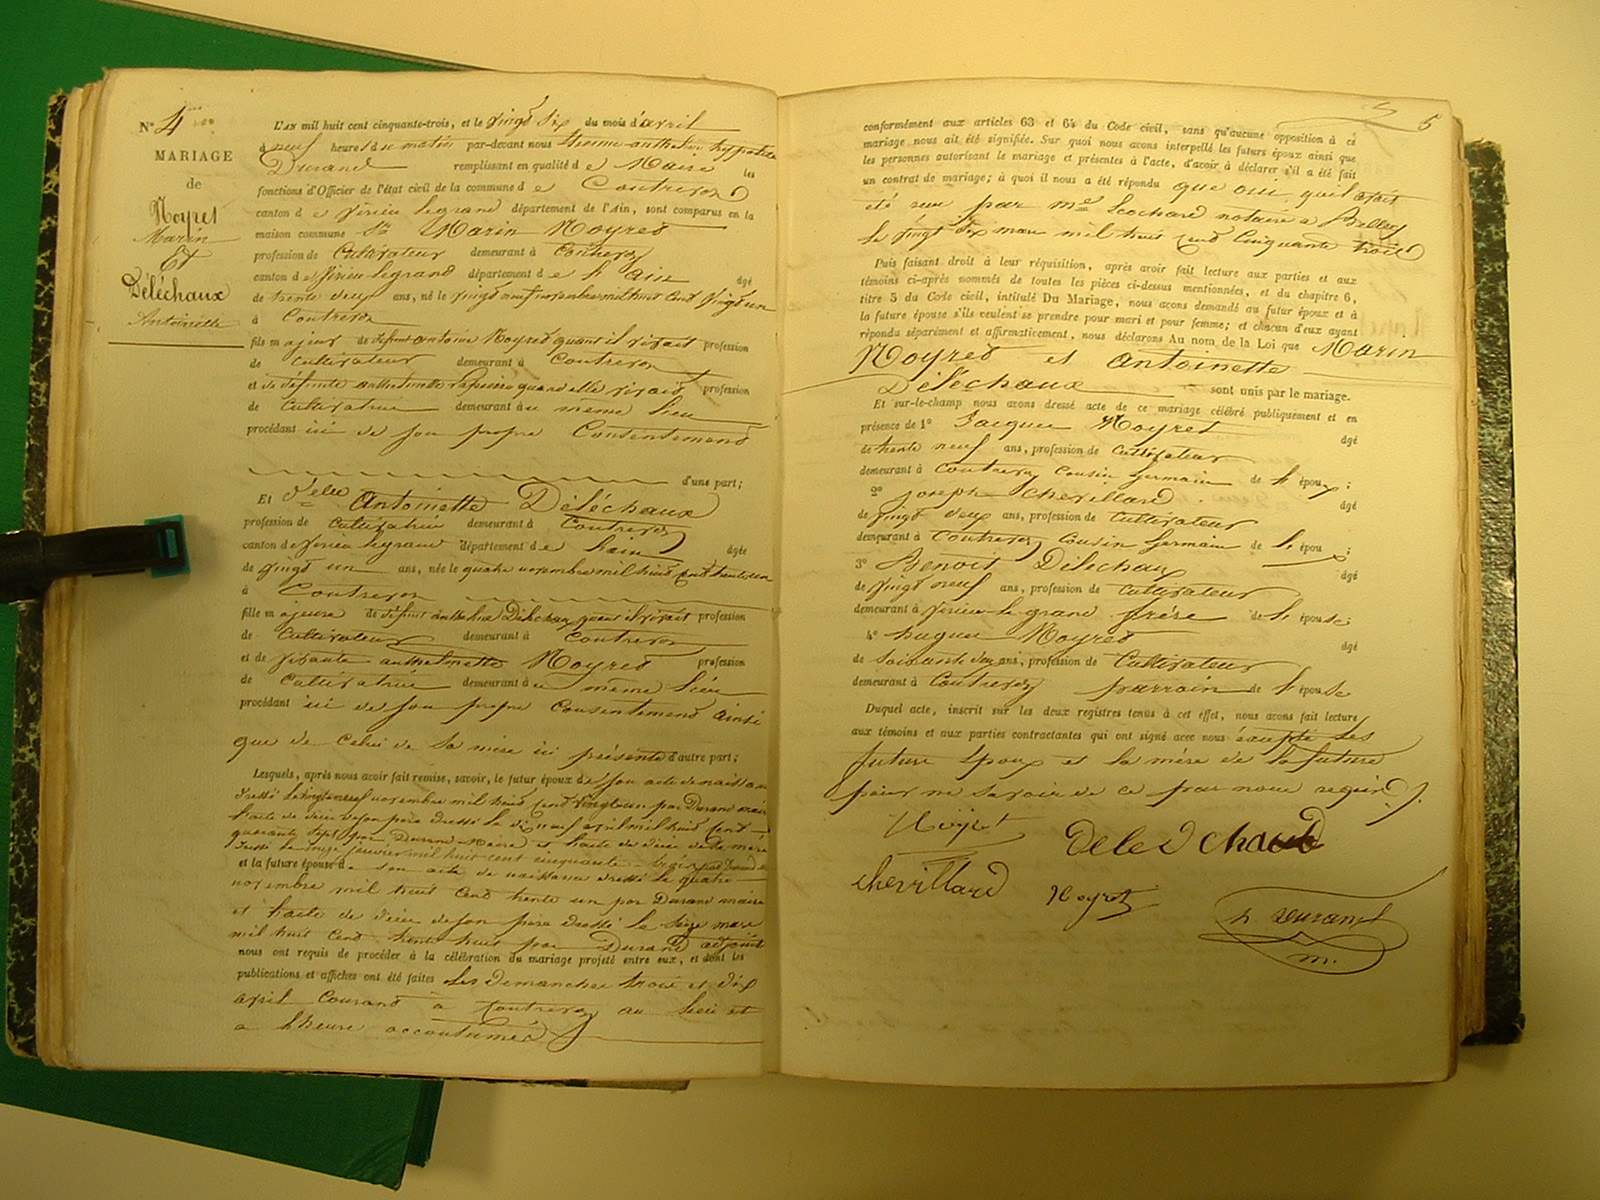 N° 4
MARIAGE
de
Noyret
Marin
Et
Déléchaux
Antoinette
L'AN mil huit cent cinquante-trois, et le vingt six du mois d'avril
à neuf heures du matin par-devant nous Etienne anthelme hyppolite
Durand remplissant en qualité de Maire les
fonctions d'Officier de l'état civil de la commune de Contrevoz
canton de virieu legrand département de l'Ain, sont comparus en la
maison commune Sr Marin Noyret
profession de Cultivateur demeurant à Contrevoz
canton de virieu legrand département de l'ain âgé
de trente deux ans, né le vingt neuf novembre mil huit cent vingt un
à Contrevoz
fils majeur de défunt antoine Noyret quant il vivait profession
de Cultivateur demeurant à Contrevoz
et de défunte anthelmette quand elle vivait profession
de Cultivatrice demeurant au même lieu
procédant ici de son propre Consentement
d'une part;
Et Delle Antoinette Déléchaux
profession de Cultivatrice demeurant à Contrevoz
canton de virieu legrand département de l'ain âgée
de vingt un ans, née le quatre novembre mil huit cent trente un
à Contrevoz
fille majeure de défunt anthelme Déléchaux quant il vivait profession
de Cultivateur demeurant à Contrevoz
et de vivante anthelmette Noyret profession
de Cultivatrice demeurant au même lieu
procédant ici de son propre Consentement ainsi
que de Celui de sa mère ici présente d'autre part;
Lesquels, après nous avoir fait remise, savoir, le futur époux de son acte de naissance
dressé le vingt neuf novembre mil huit cent vingt un par Durand maire
l'acte de décès de son père dressé le dix neuf avril mil huit cent
quarante sept par Durand Maire et l'acte de décès de sa mère
dressé le janvier mil huit cent cinquante-trois par Durand
et la future épouse de son acte de naissance dressé le quatre
novembre mil huit cent trente un par Durand maire
et l'acte de décès de son père dressé le seize mars
mil huit cent trente huit par Durand adjoint
nous ont requis de procéder à la célébration du mariage projeté entre eux, et dont les
publications et affiches ont été faites les Dimanches trois et dix
avril Courant à Contrevoz au lieu et
a l'heure accoutumés
5
conformément aux articles 63 et 64 du Code civil, sans qu'aucune opposition à ce
mariage nous ait été signifiée. Sur quoi nous avons interpellé les futurs époux ainsi que
les personnes autorisant le mariage et présentes à l'acte, d'avoir à déclarer s'il a été fait
un contrat de mariage; à quoi il nous a été répondu que oui, qu'il avait
été reçu par me notaire a Belley
le vingt six mars mil huit cent Cinquante trois
Puis faisant droit à leur réquisition, après avoir fait lecture aux parties et aux
témoins ci-après nommés de toutes les pièces ci-dessus mentionnées, et du chapitre 6,
titre 5 du Code civil, intitulé Du Mariage, nous avons demandé au futur époux et à
la future épouse s'ils veulent se prendre pour mari et pour femme; et chacun d'eux ayant
répondu séparément et affirmativement, nous déclarons Au nom de la Loi que Marin
Noyret et Antoinette
Déléchaux sont unis par le mariage.
Et sur-le-champ nous avons dressé acte de ce mariage célébré publiquement et en
présence de 1° Jacques Noyret âgé
de trente neuf ans, profession de Cultivateur
demeurant à Contrevoz Cousin Germain de l'époux;
2° Joseph Chevillard âgé
de vingt deux ans, profession de Cultivateur
demeurant à Contrevoz Cousin Germain de l'époux;
3° Benoit Déléchaux âgé
de vingt neuf ans, profession de Cultivateur
demeurant à virieu-le grand frère de l'épouse;
4° hugues Noyret âgé
de Soixante deux ans, profession de Cultivateur
demeurant à Contrevoz parrain de l'épouse
Duquel acte, inscrit sur les deux registres tenus à cet effet, nous avons fait lecture
aux témoins et aux parties contractantes qui ont signé avec nous excepté les
future époux et la mère de la future
pour ne savoir de ce par nous requis
Noyret
deledchaud
chevillard
Noyret
h. Durand
m.